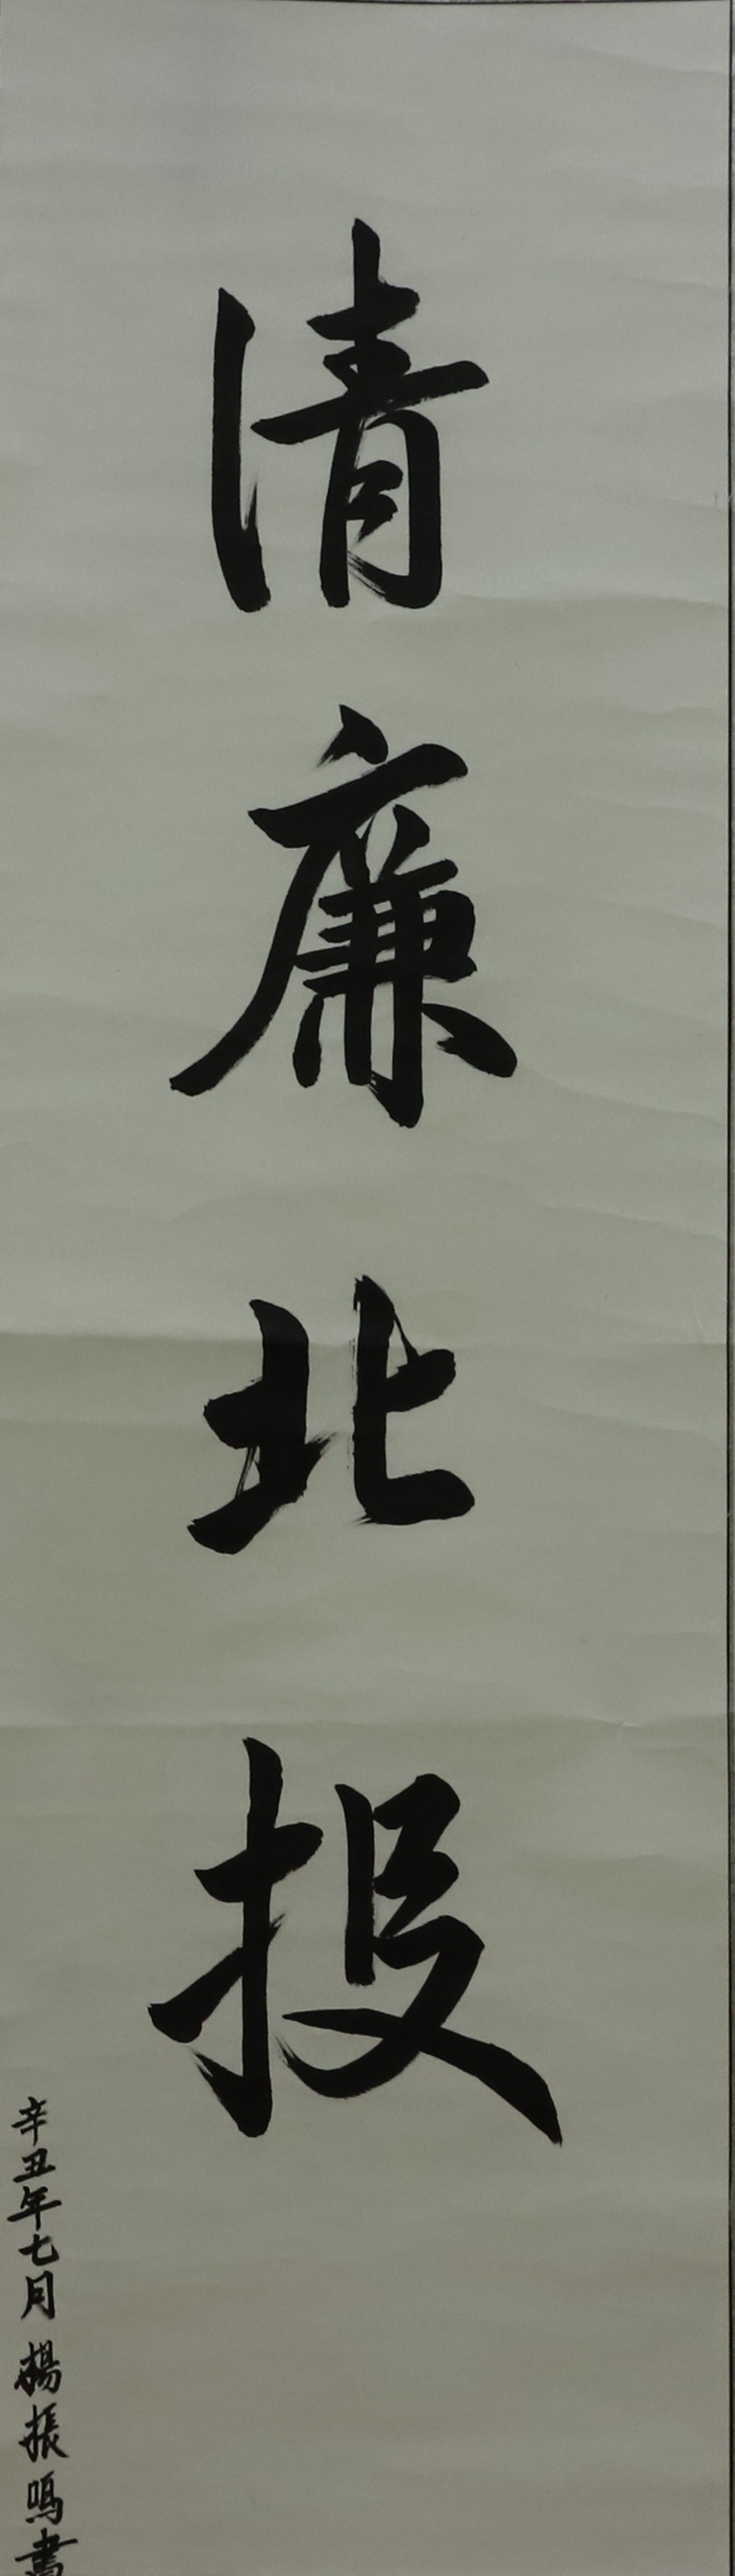 清廉北投
辛丑年七月 楊振鳴書